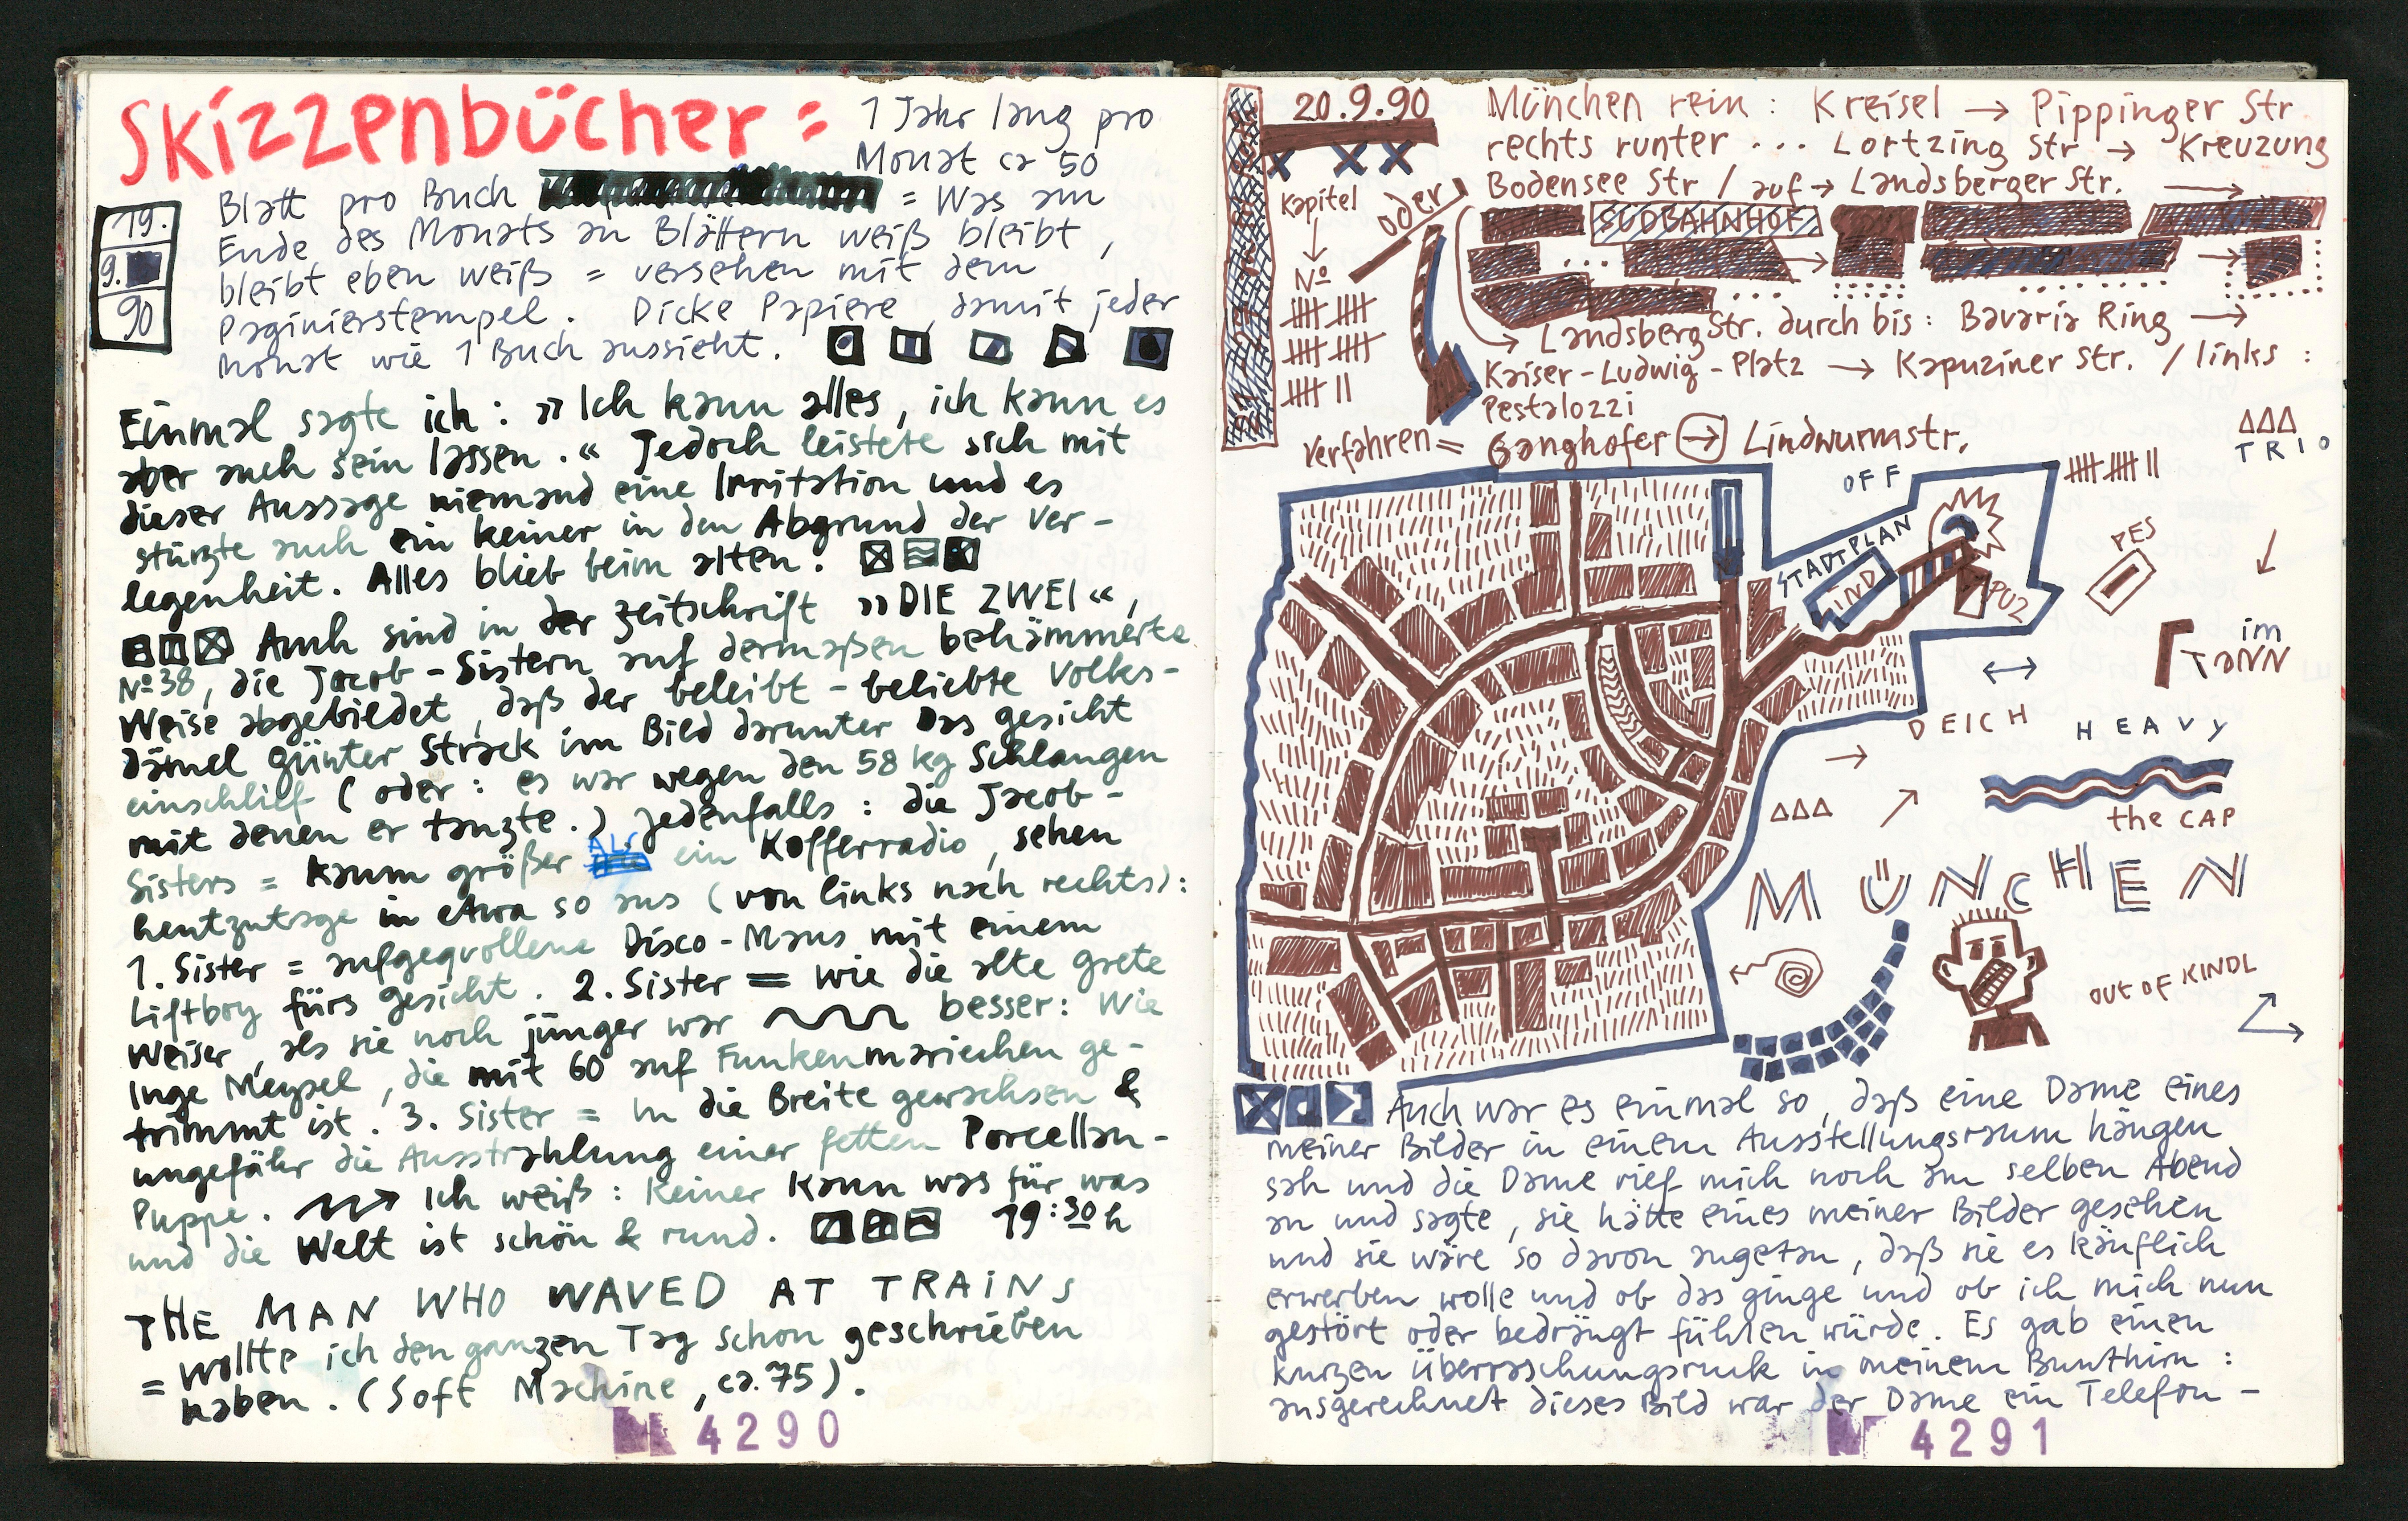 Skizzenbücher = 1 Jahr lang pro
Monat ca 50
19.
9.
90
Blatt pro Buch = Was am
Ende des Monats an Blättern weiß bleibt,
bleibt eben weiß = versehen mit dem
Paginierstempel. Dicke Papiere, damit jeder
Monat wie 1 Buch aussieht.
Einmal sagte ich: »Ich kann alles, ich kann es
aber auch sein lassen.« Jedoch leistete sich mit
dieser Aussage niemand eine Irritation und es
stürzte auch ein keiner in den Abgrund der Ver-
legenheit. Alles blieb beim alten.
Auch sind in der Zeitschrift »DIE ZWEI«,
No 38, die Jacob-Sistern auf dermaßen behämmerte
Weise abgebildet, daß der beleibt-beliebte Volks-
dämel Günter Strack im Bild darunter das Gesicht
einschlief (oder: es war wegen den 58 kg Schlangen
mit denen er tanzte.) Jedenfalls: die Jacob-
Sisters = kaum größer ALS ein Kofferradio, sehen
heutzutage in etwa so aus (von links nach rechts):
1. Sister = aufgequollene Disco-Maus mit einem
Liftboy fürs Gesicht. 2. Sister = wie die alte Grete
Weiser, als sie noch jünger war besser: Wie
Inge Meysel, die mit 60 auf Funkenmariechen ge-
trimmt ist. 3. Sister = In die Breite gewachsen &
ungefähr die Ausstrahlung einer fetten Porcellan-
Puppe. Ich weiß: Keiner kann was für was
und die Welt ist schön & rund. 19:30 h
THE MAN WHO WAVED AT TRAINS
= wollte ich den ganzen Tag schon geschrieben
haben. (Soft Machine, ca. 75).
4290
20.9.90
Kapitel
No
oder
München rein: Kreisel → Pippinger Str
rechts runter ... Lortzing Str → Kreuzung
Bodensee Str / auf → Landsberger Str. →
SÜDBAHNHOF
Landsberg Str. durch bis: Bavaria Ring →
Kaiser-Ludwig-Platz → Kapuziner Str. / links:
Pestalozzi
Verfahren = Ganghofer → Lindwurmstr.
TRIO
OFF
STADTPLAN
LIND
PUZ
PES
im
TANN
DEICH
HEAVY
the CAP
MÜNCHEN
OUT OF KINDL
Auch war es einmal so, daß eine Dame eines
meiner Bilder in einem Ausstellungsraum hängen
sah und die Dame rief mich noch am selben Abend
an und sagte, sie hätte eines meiner Bilder gesehen
und sie wäre so davon angetan, daß sie es käuflich
erwerben wolle und ob das ginge und ob ich mich nun
gestört oder bedrängt fühlen würde. Es gab einen
kurzen Überraschungsruck in meinem Bunthirn:
ausgerechnet dieses Bild war der Dame ein Telefon-
4291